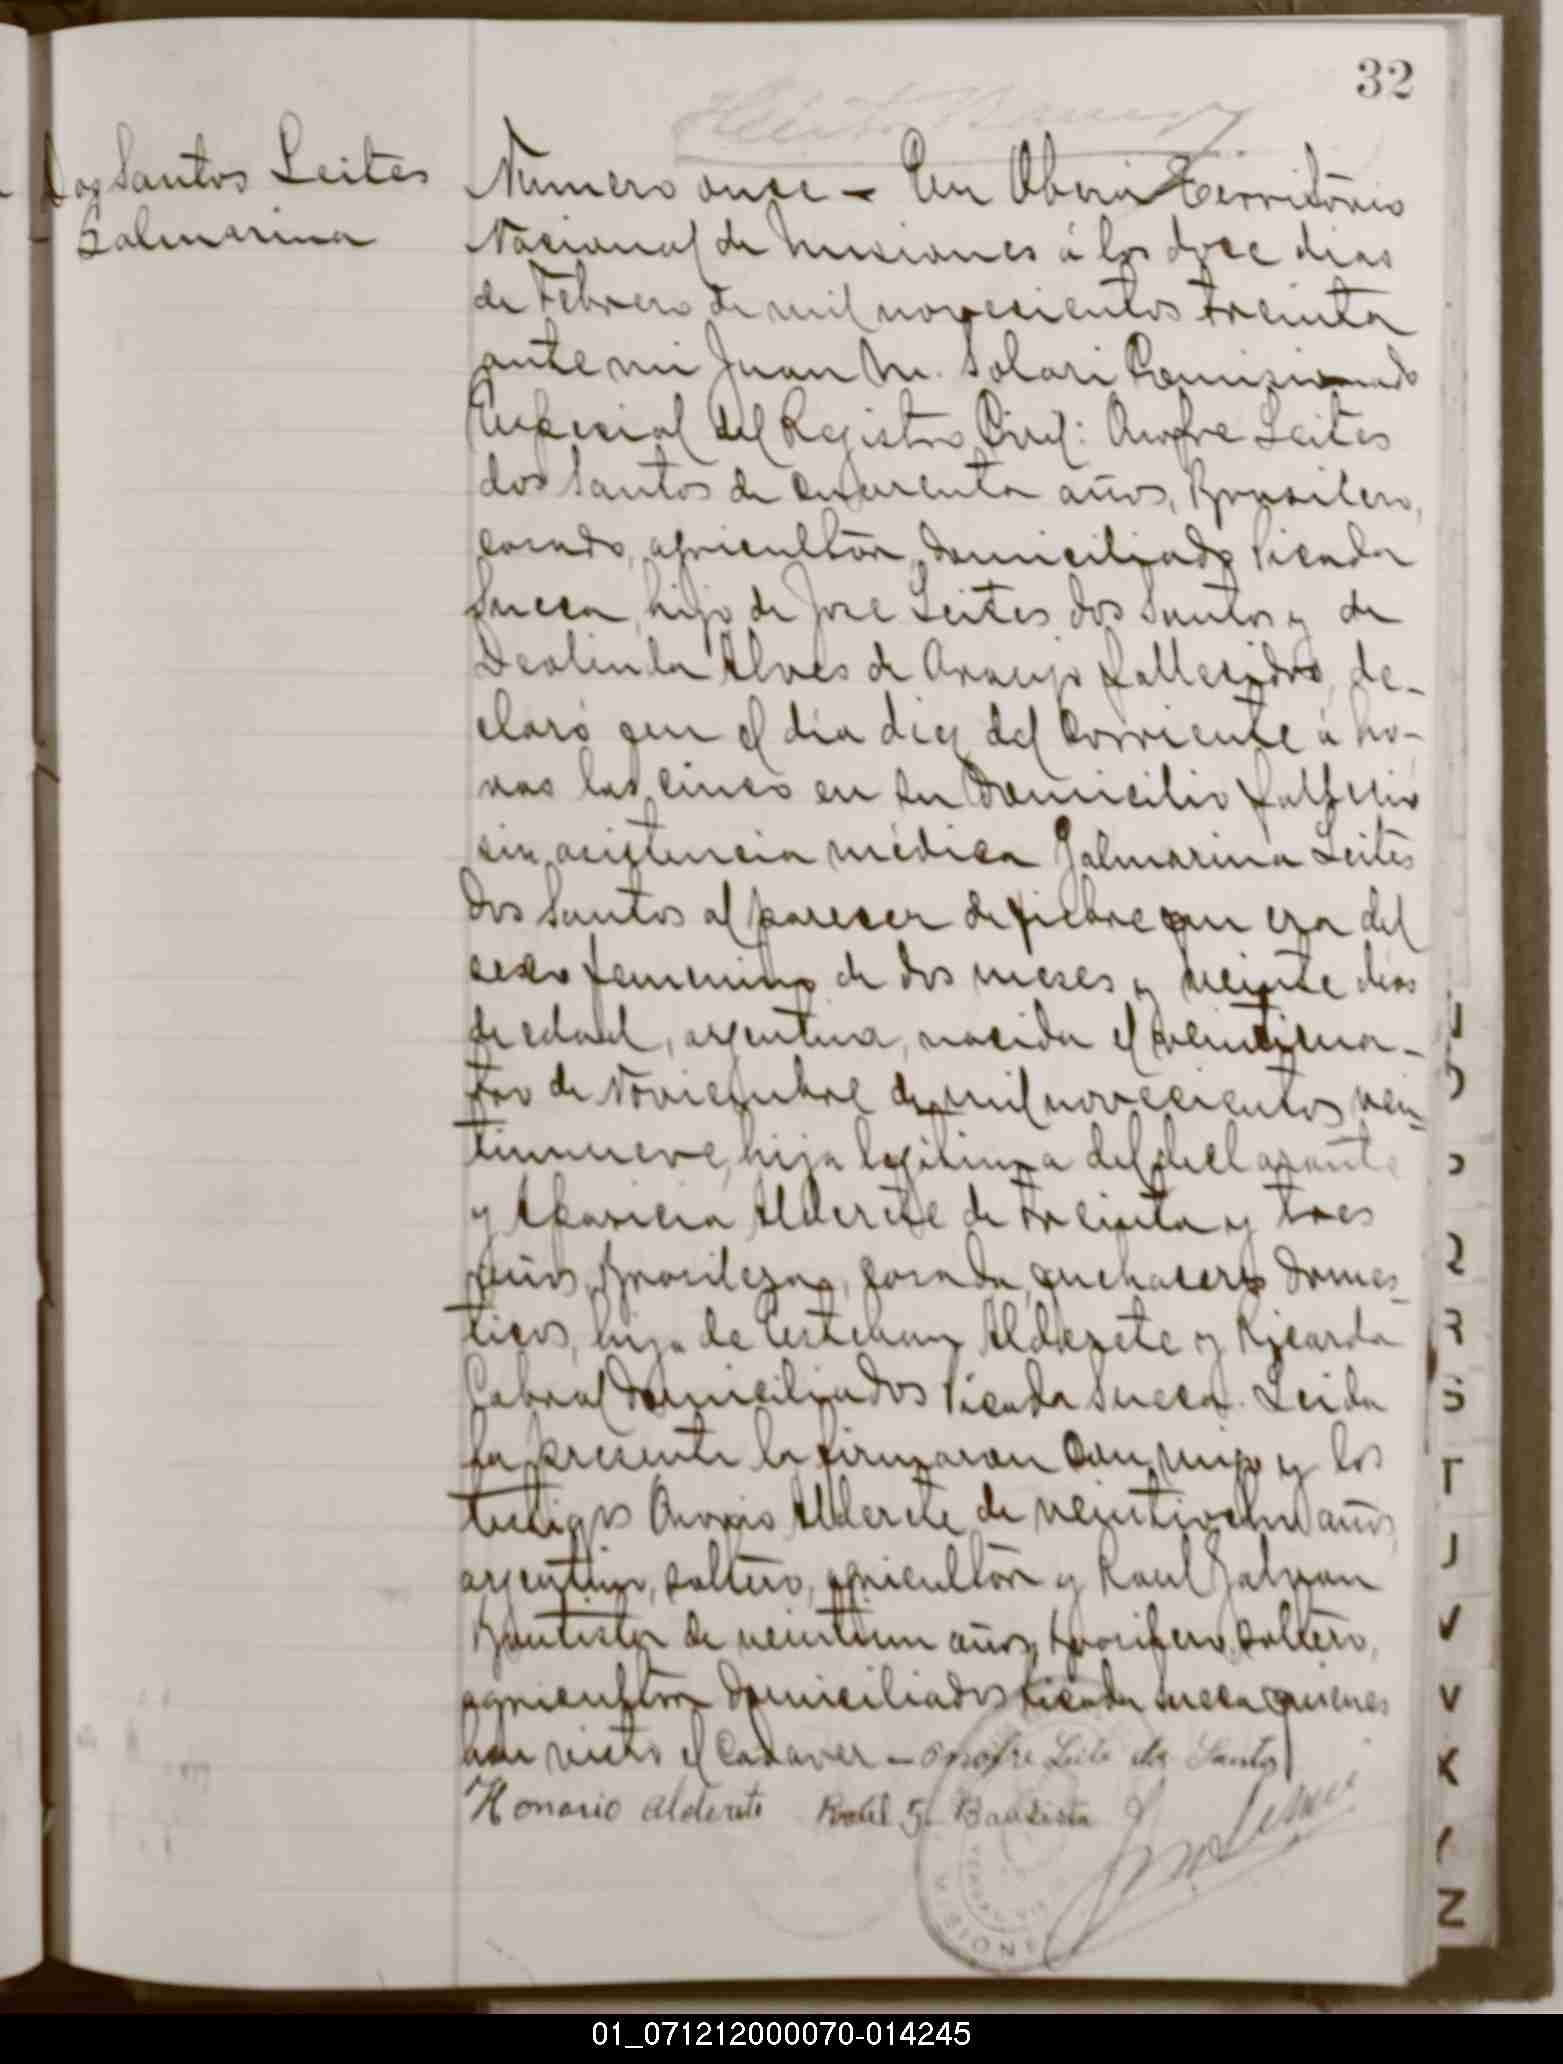 32
Dos Santos Leites
Galmarina
Numero once - En Oberá Territorio
Nacional de Misiones á los doce dias
de Febrero de mil novecientos treinta
ante mi Juan M. Solari Comisionado
Especial del Rejistro Civil: Onofre Leites
dos Santos de cuarenta años, Brasilero,
casado, agricultór, domiciliado Picada
Sueca, hijo de Jose Leites dos Santos y de
Deolinda Alves de Araujo fallecidos, de-
claró que el día diez del corriente á ho-
ras las cinco en su domicilio falleció
sin acistencia médica Galmarina Leites
dos Santos al parecer de fiebre que era del
sexo femenino de dos meses y veinte dias
de edad, argentina, nacida el veinticua-
tro de Noviembre de mil novecientos vein-
tinueve, hija legitima del declarante
y Aparicia Alderete de treinta y tres
años, Brasilera, casada, quehaceres domes-
ticos, hija de Esteban Alderete y Ricarda
Cabral domiciliados Picada Sueca. Leida
la presente la firmaron conmigo y los
testigos Onorio Alderete de veintiocho años,
argentino, soltero, agricultór y Raul Galvan
Bautista de veintiun años, Brasilero, soltero,
agricultor domiciliados Picada Sueca quienes
han visto el cadaver - Onofre Leite dos Santos
Honorio Alderete Raul G. Bautista
MISIONES
J
V
V
X
Z
01_071212000070-014245